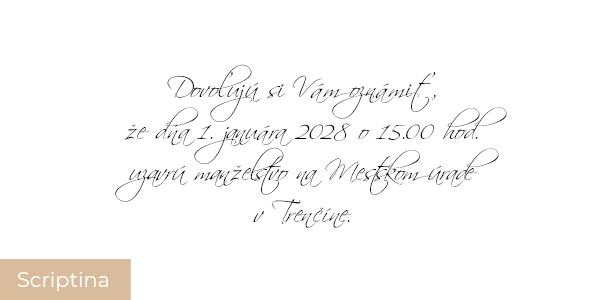 Dovoľujú si Vám oznámiť,
že dňa 1. januára 2028 o 15.00 hod.
uzavrú manželstvo na Mestskom úrade
v Trenčíne.
Scriptina